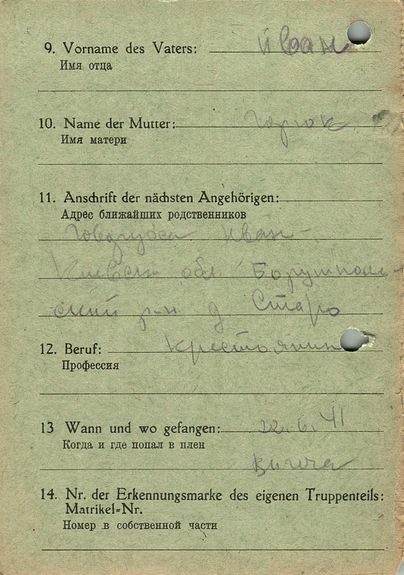 9. Vorname des Vaters: Иван
Имя отца
10. Name der Mutter:
Имя матери
11. Anschrift der nächsten Angehörigen:
Адрес ближайших родственников
Иван -
Киевск обл. Борушполь-
ский р-н д Старо
12. Beruf: Крестьянин
Профессия
13 Wann und wo gefangen: 22.6.41
Когда и где попал в плен
14. Nr. der Erkennungsmarke des eigenen Truppenteils:
Matrikel-Nr.
Номер в собственной части